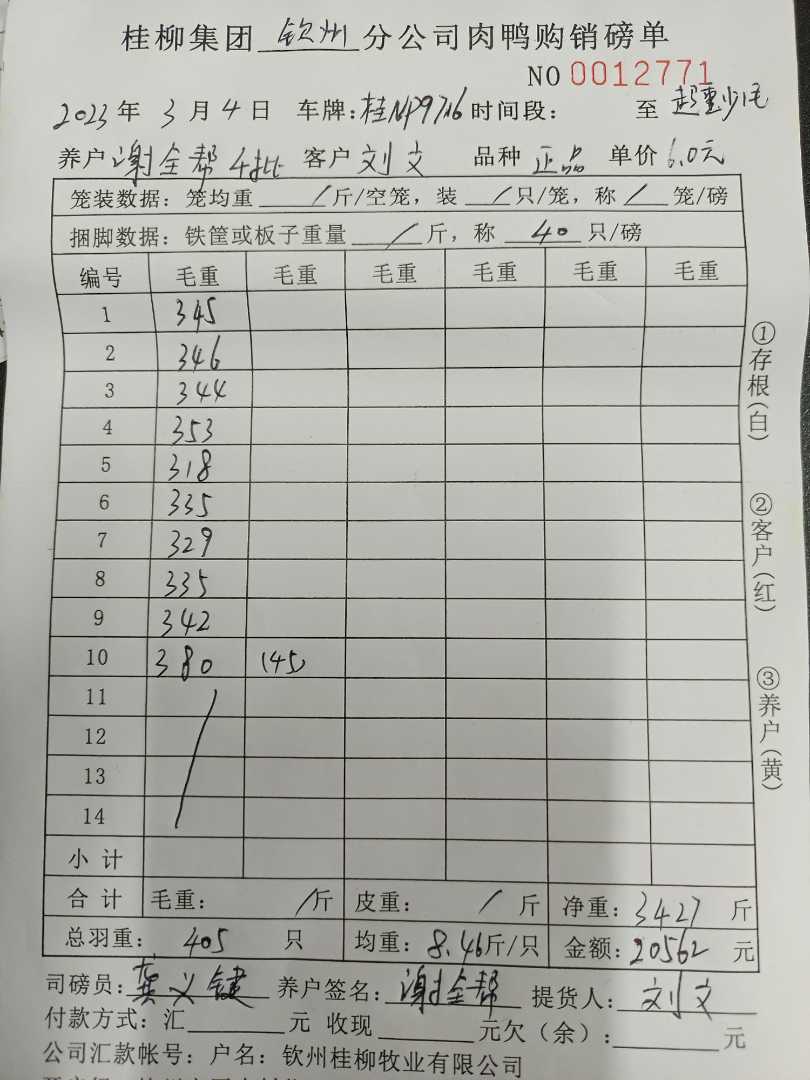 桂柳集团 钦州 分公司肉鸭购销磅单
NO 0012771
2023 年 3 月 4 日 车牌:桂NP9716 时间段: 至 超重少毛
养户 谢全帮 4批 客户 刘文 品种 正品 单价 6.0元
笼装数据: 笼均重 / 斤/空笼, 装 / 只/笼, 称 / 笼/磅
捆脚数据: 铁筐或板子重量 / 斤, 称 40 只/磅
编号 毛重 毛重 毛重 毛重 毛重 毛重
1 345
2 346
3 344
4 353
5 318
6 335
7 329
8 335
9 342
10 380 (45)
11
12
13
14
小 计
合 计 毛重: / 斤 皮重: / 斤 净重: 3427 斤
总羽重: 405 只 均重: 8.46斤/只 金额: 20562 元
司磅员: 龚义键 养户签名: 谢全帮 提货人: 刘文
付款方式: 汇 元 收现 元欠(余): 元
公司汇款帐号: 户名: 钦州桂柳牧业有限公司
①存根(白)
②客户(红)
③养户(黄)